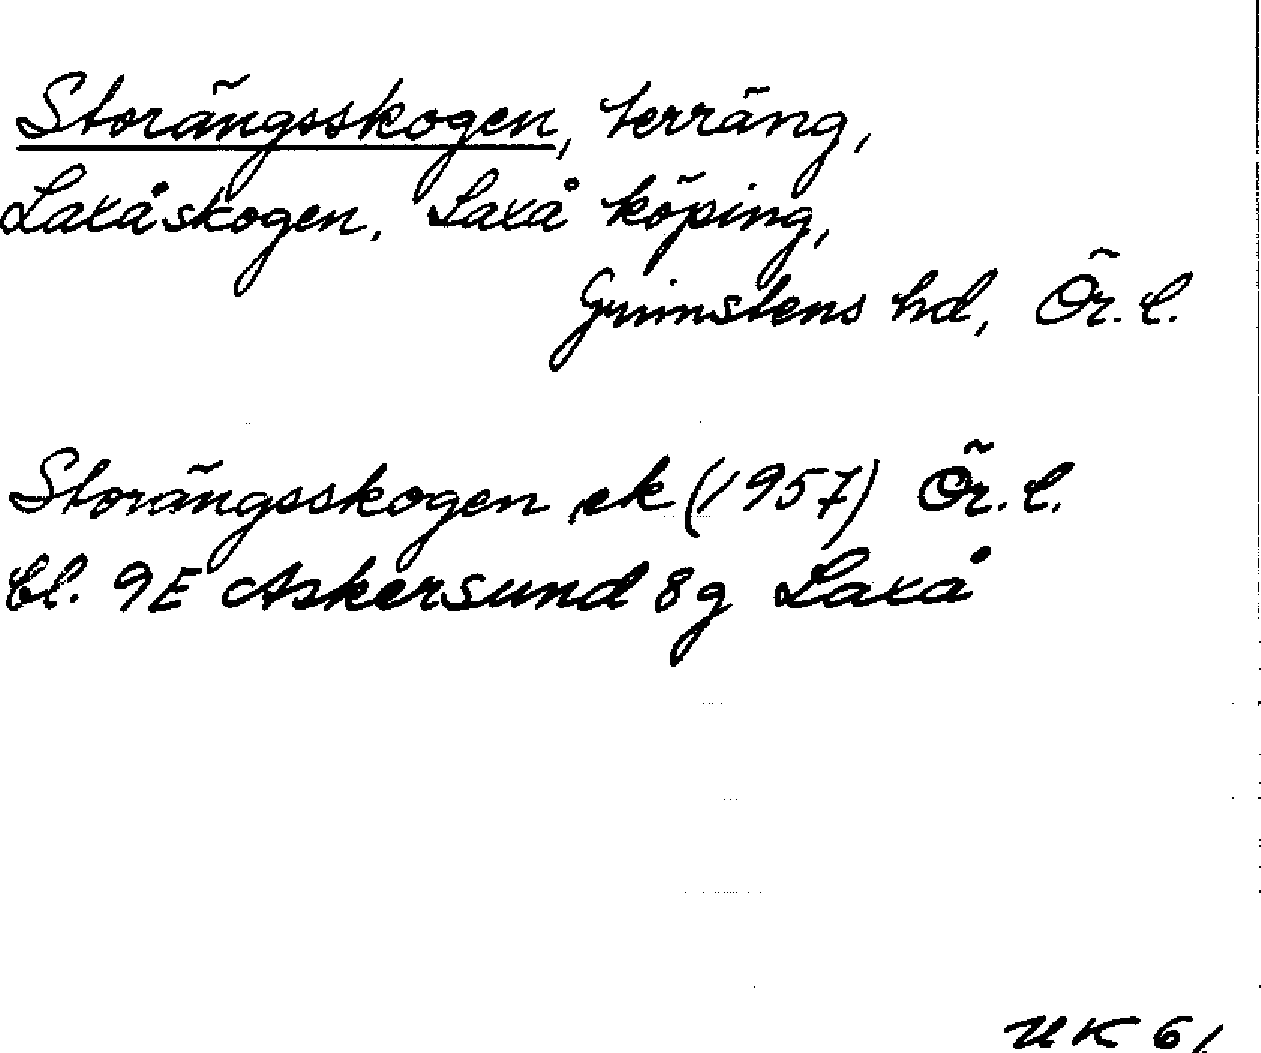 Storängsskogen, terräng,
Laxåskogen, Laxå köping,
Grimstens hd, Ör. l.
Storängsskogen ek (1957) Ör. l.
bl. 9E Askersund 8g Laxå
UK 61